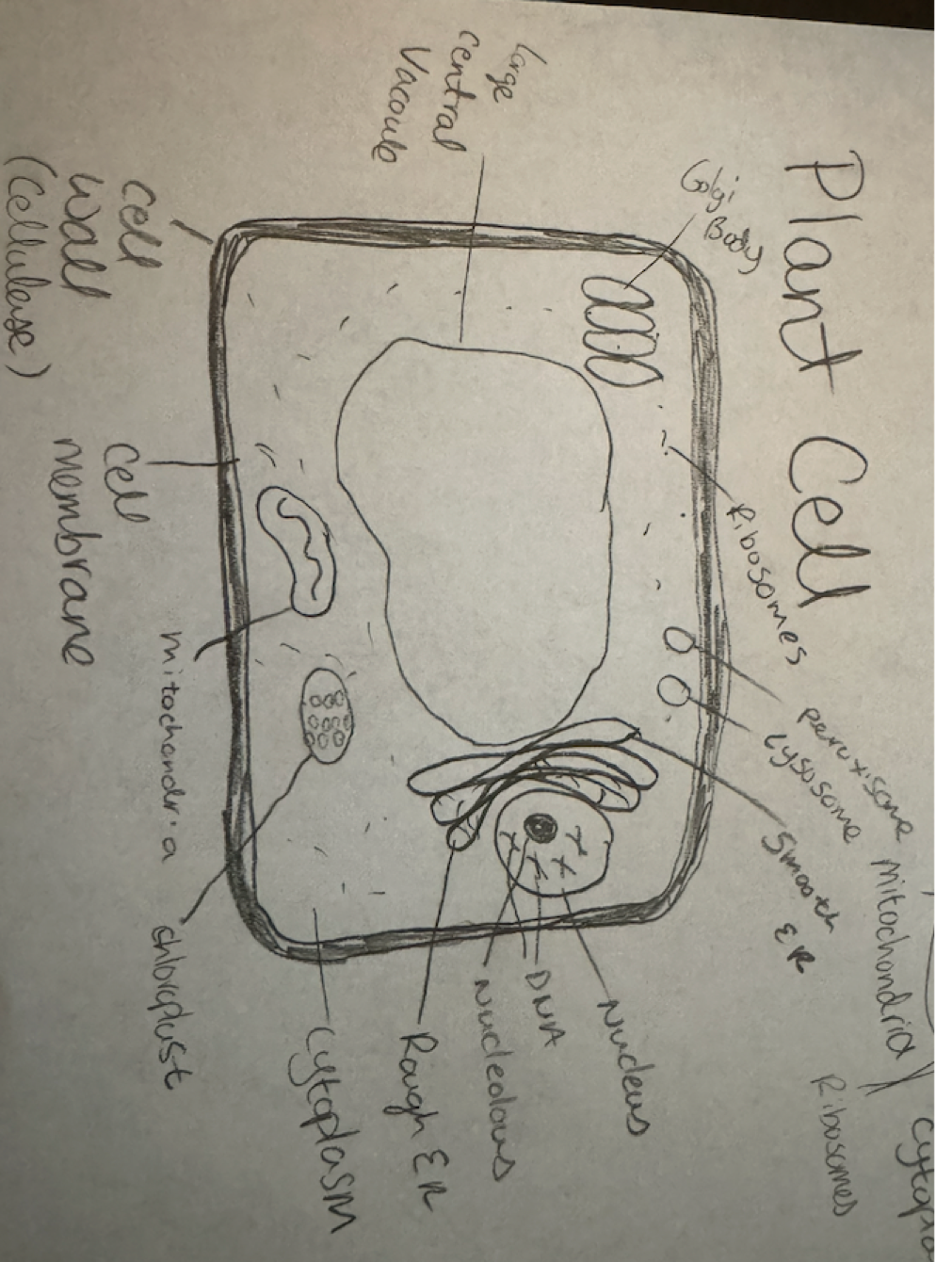 Plant Cell
Golgi
Body
Ribosomes
peroxisome
Lysosome
Smooth
ER
large
central
Vacoub
Nucleus
DNA
Nucleolous
Rough ER
Cytoplasm
Cell
Wall
(Cellulose)
Cell
Membrane
Mitochondria
chloroplast
Mitochondria
Ribosomes